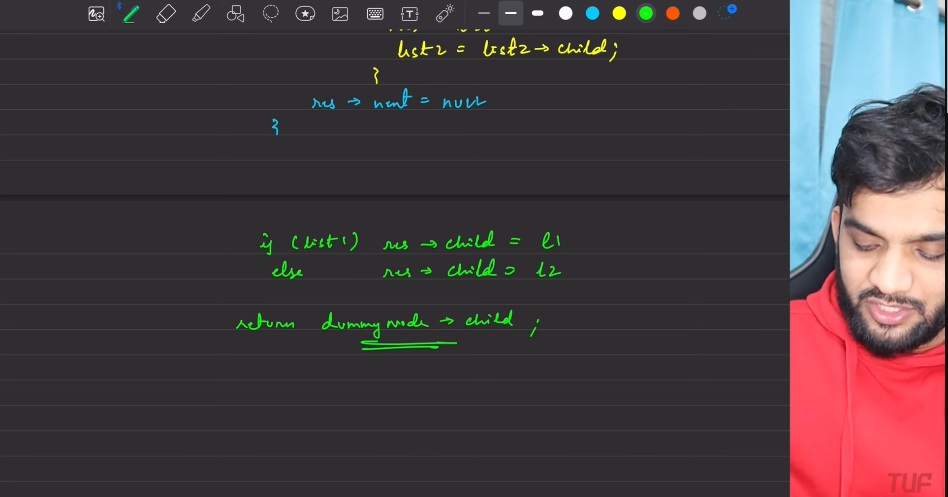 list2 = list2 → child;
}
res → next = null
}
if (list1) res → child = l1
else res → child = l2
return dummy node → child ;
TUF